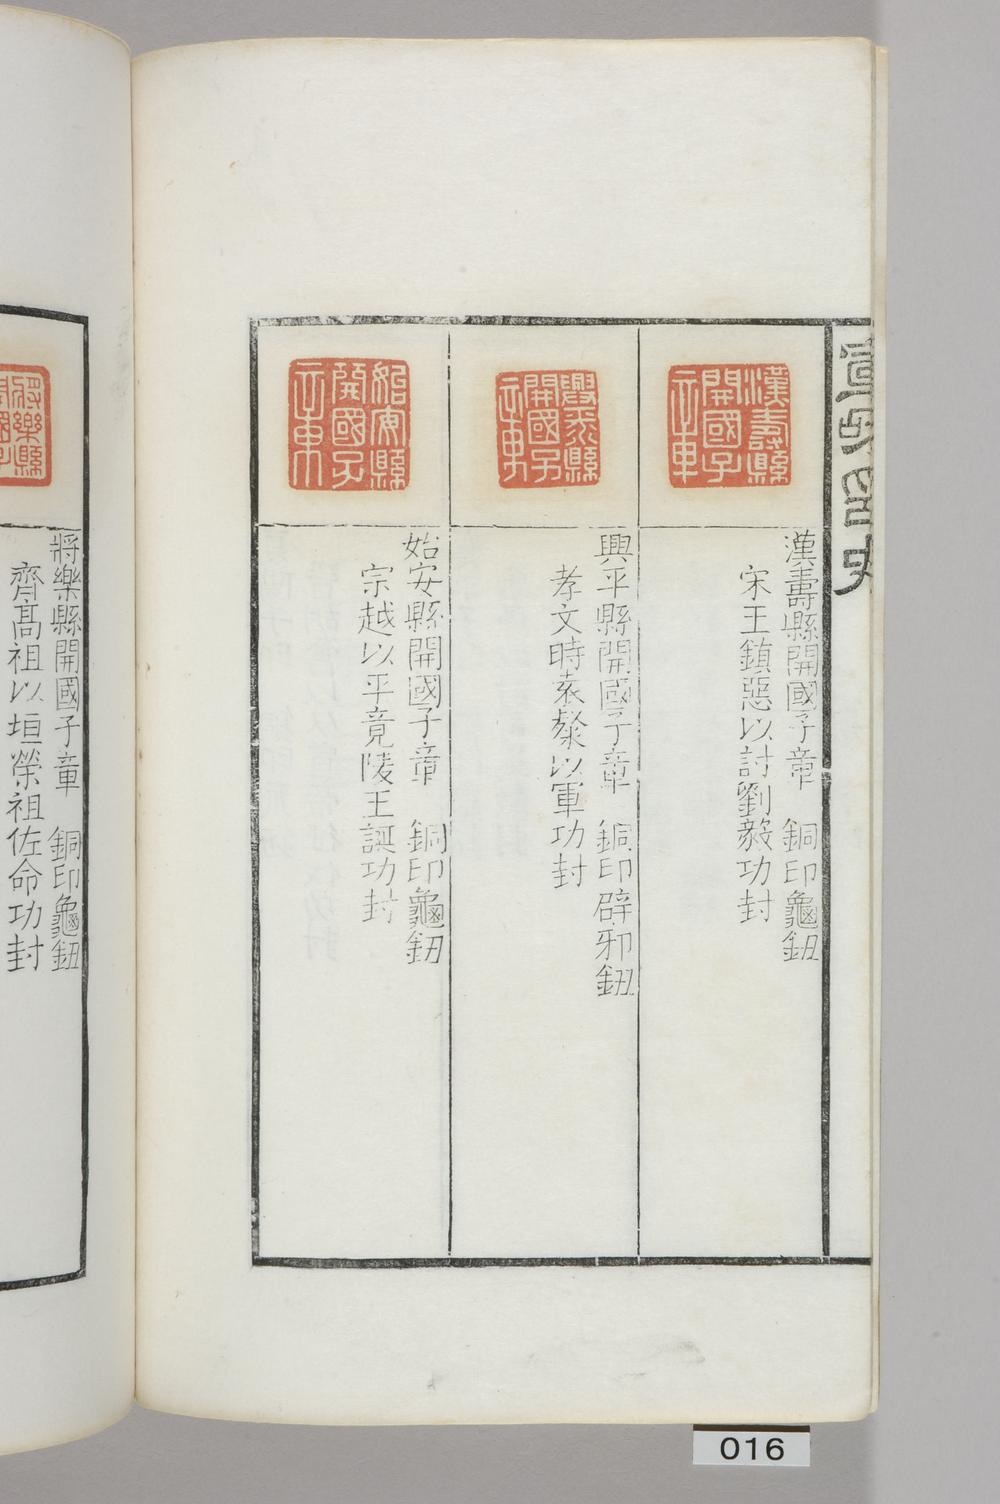 漢壽縣
開國子
章
漢壽縣開國子章 銅印龜鈕
宋王鎮惡以討劉毅功封
興平縣
開國子
章
興平縣開國子章 銅印辟邪鈕
孝文時袁粲以軍功封
始安縣
開國子
章
始安縣開國子章 銅印龜鈕
宗越以平竟陵王誕功封
將樂縣
將樂縣開國子章 銅印龜鈕
齊髙祖以垣榮祖佐命功封
016